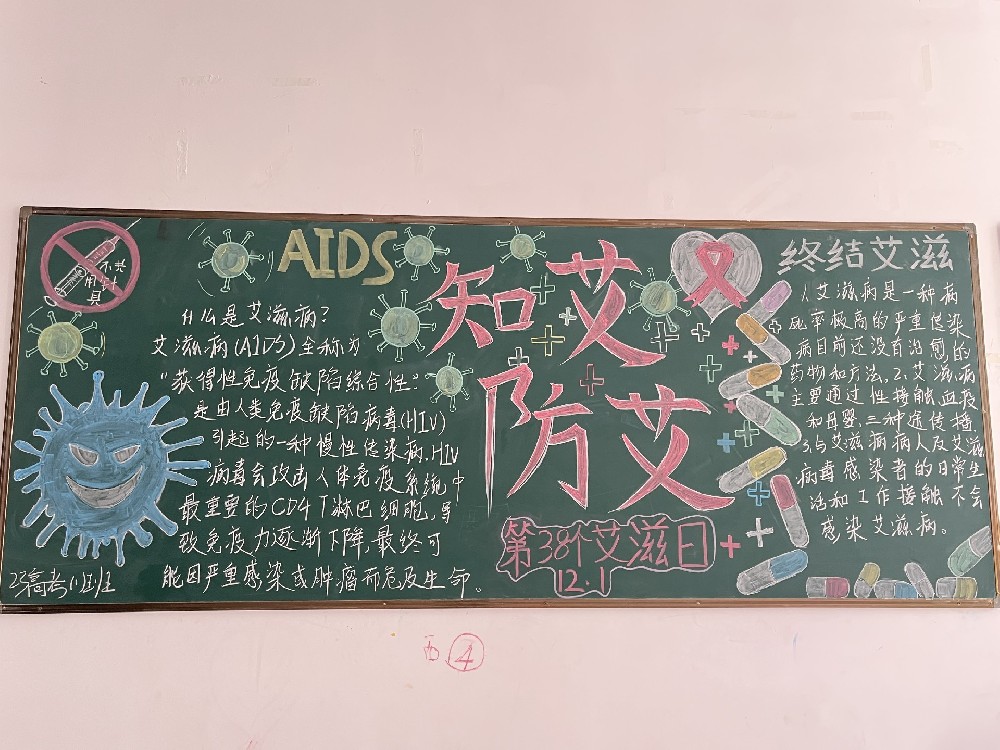 不共
用针
具
AIDS
什么是艾滋病?
艾滋病(AIDS)全称为
"获得性免疫缺陷综合性"
是由人类免疫缺陷病毒(HIV)
引起的一种慢性传染病,HIV
病毒会攻击人体免疫系统中
最重要的CD4 T淋巴细胞,导
致免疫力逐渐下降,最终可
能因严重感染或肿瘤而危及生命。
23高考(1)班
知艾
防艾
第38个艾滋日
12·1
终结艾滋
1、艾滋病是一种病
死率极高的严重传染
病目前还没有治愈的
药物和方法。2、艾滋病
主要通过性接触、血液
和母婴三种途传播
3、与艾滋病病人及艾滋
病毒感染者的日常生
活和工作接触不会
感染艾滋病。
④